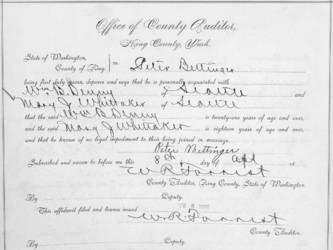 Office of County Auditor,
King County, Wash.
State of Washington,
County of King
ss
Peter Bettinger
being first duly sworn, deposes and says that he is personally acquainted with
Wm B. Denny of Seattle and
Mary J. Whittaker of Seattle
that the said Wm B. Denny is twenty-one years of age and over,
and the said Mary J Whittaker is eighteen years of age and over,
and that he knows of no legal impediment to their being joined in marriage.
Peter Bettinger
Subscribed and sworn to before me this 8th day of Apl
W R Forrest
County Auditor, King County, State of Washington
By
Deputy.
This affidavit filed and license issued
W. R. Forrest
County Auditor.
By
Deputy.